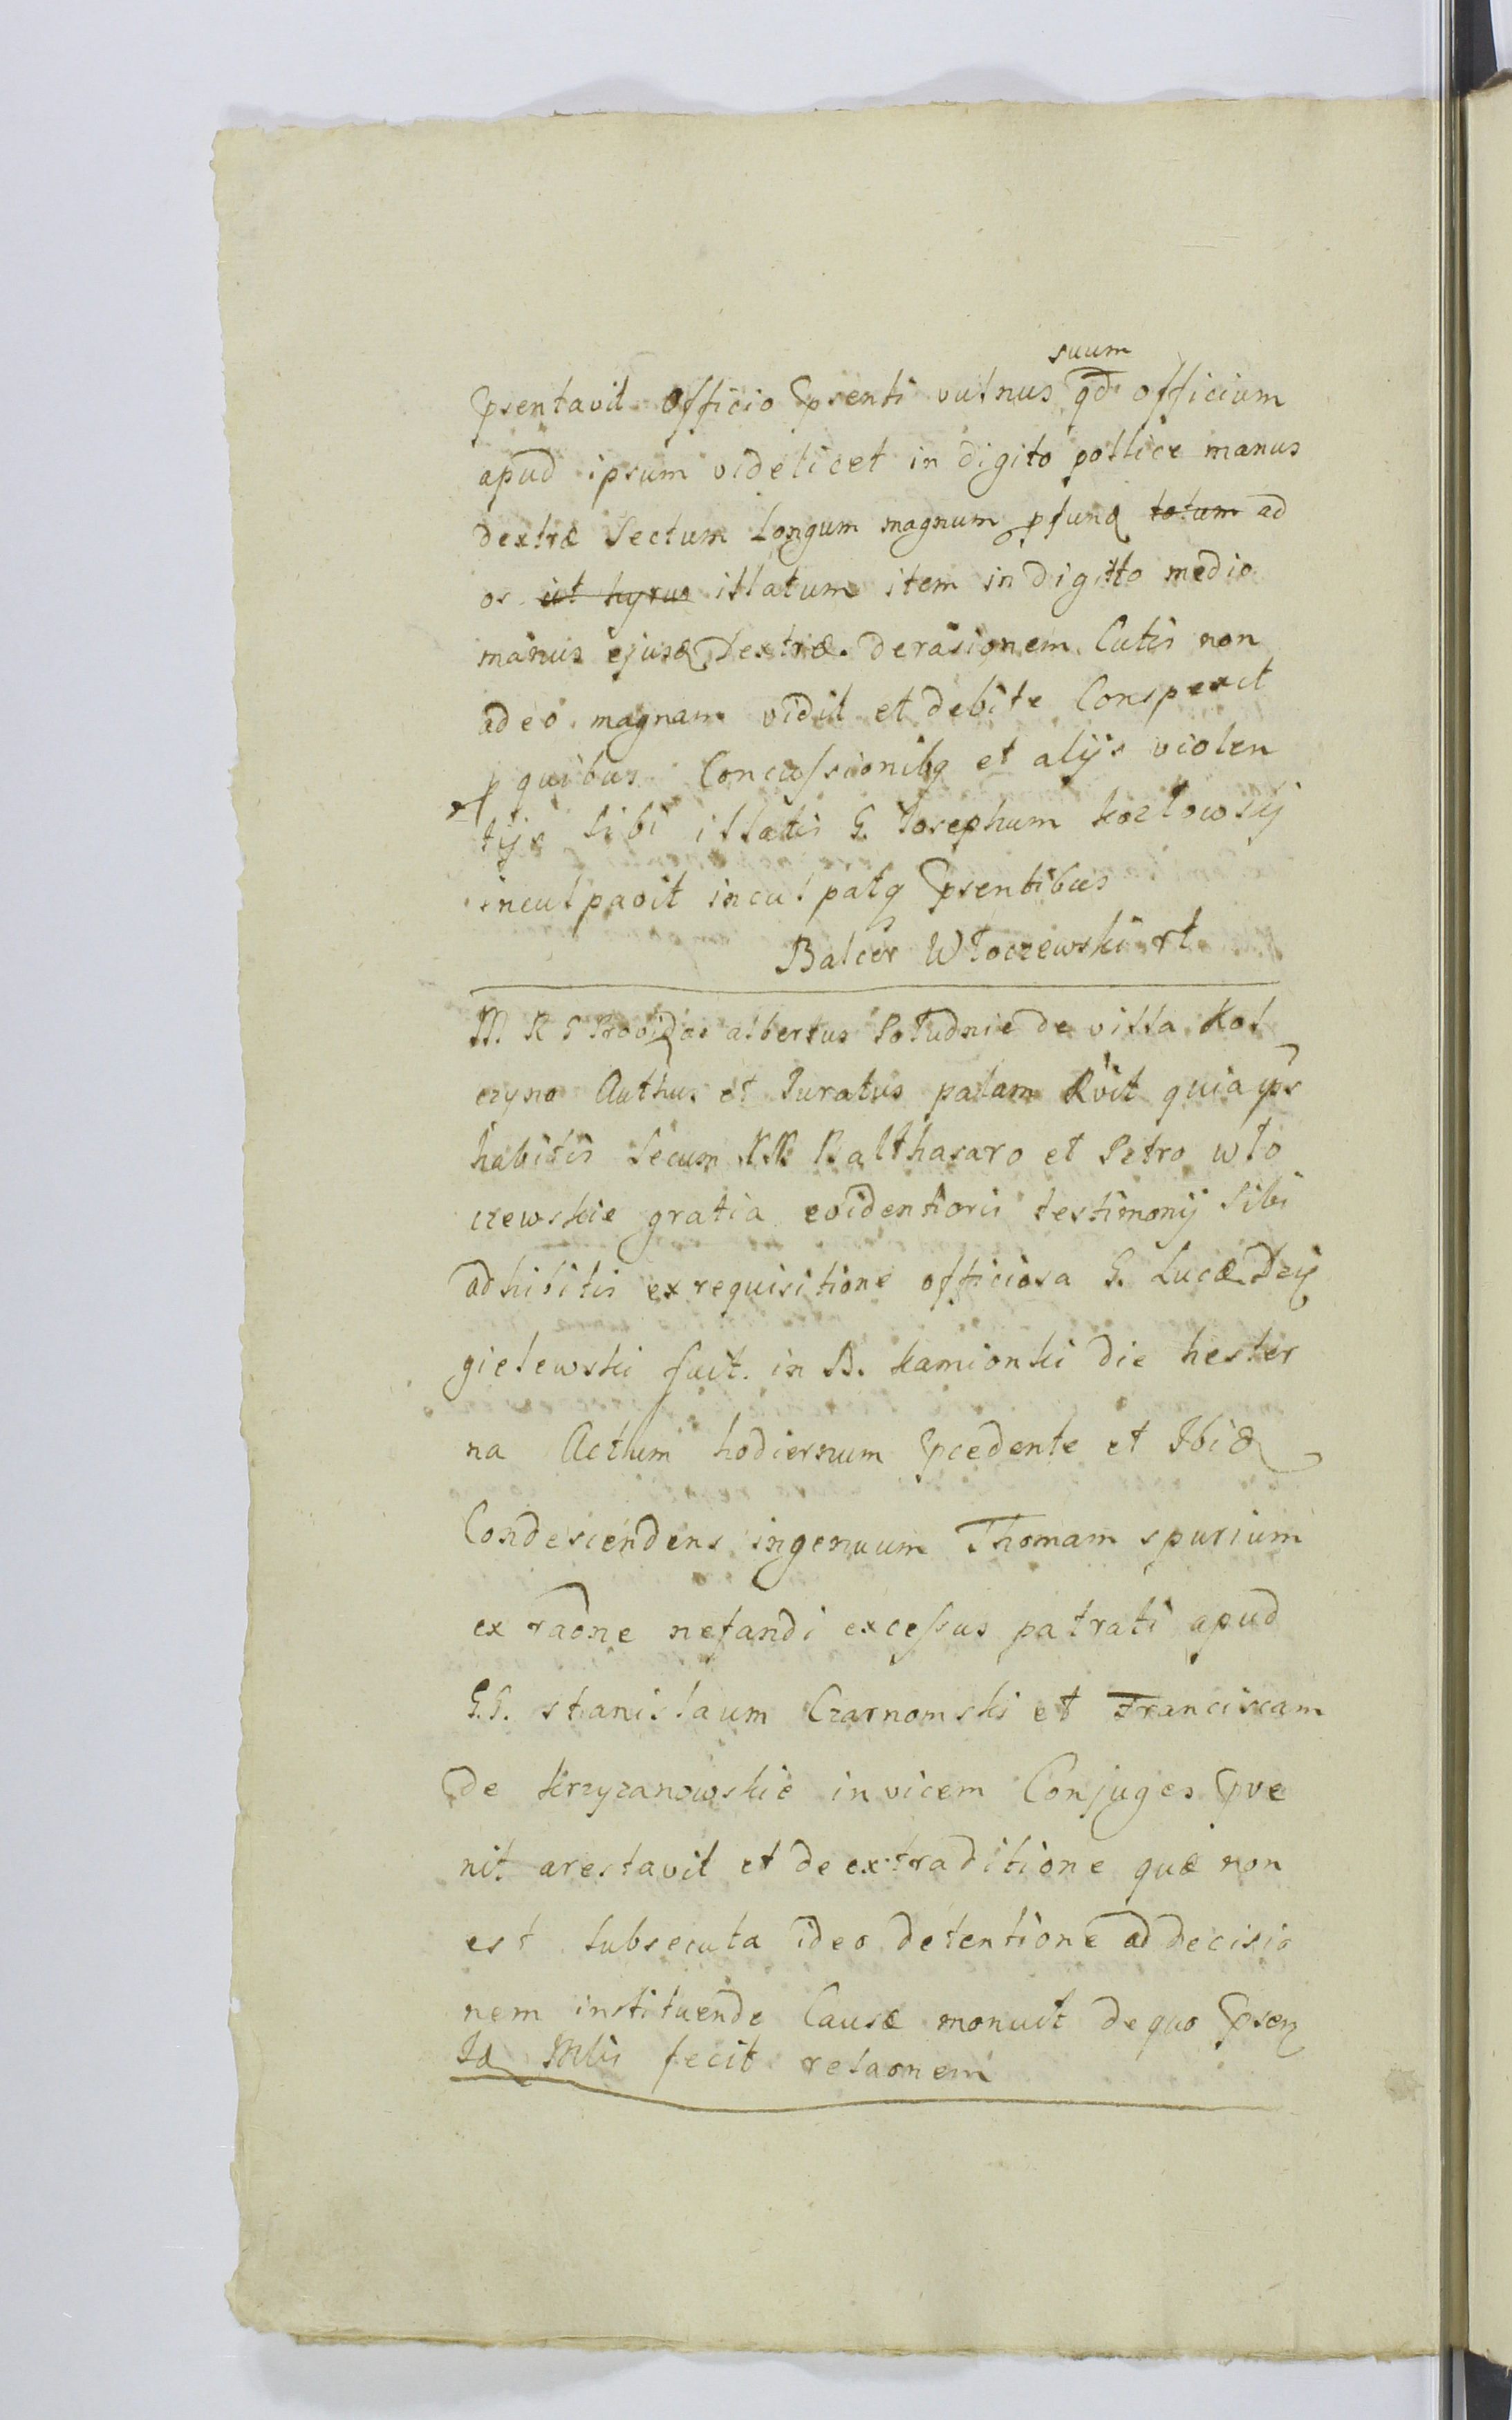 suum
Psentavit officio Psenti vulnus qd officium
apud ipsum videlicet in digito pollice manus
dextræ Sectum Longum magnum pfund totum ad
os ut hyrus illatum item in digitto medio
manus ejusd Dextræ derasionem Cutis non
adeo magnam vidit et debite Conspexit
p quibus Concussionibq et alijs violen
tijs Sibi illatis G. Josephum kozlowsky
inculpavit inculpatq Psentibus
Balcer Włoczewski rt
M. R S Providus albertus Południe de villa Kol
czyno Authus et Juratus palam Rvit quia ips
habitis Secum NN Balthasaro et Petro wlo
czewskie gratia evidentioris testimonij Sibi
adhibitis ex requisitione officiosa G. Lucæ Dey
gielewski fuit in B. kamionki die hester
na Actum hodiernum Pcedente et Ibid
Condescendens ingenuum Thomam spurium
ex raone nefandi excessus patrati apud
G.G. stanislaum Czarnomski et Franciscam
de krzyzanowskie invicem Conjuges Pve
nit arestavit et de extraditione quæ non
est subsecuta ideo detentione ad decisio
nem instituende Causæ monuit de quo Psen
Id Mlis fecit relaonem